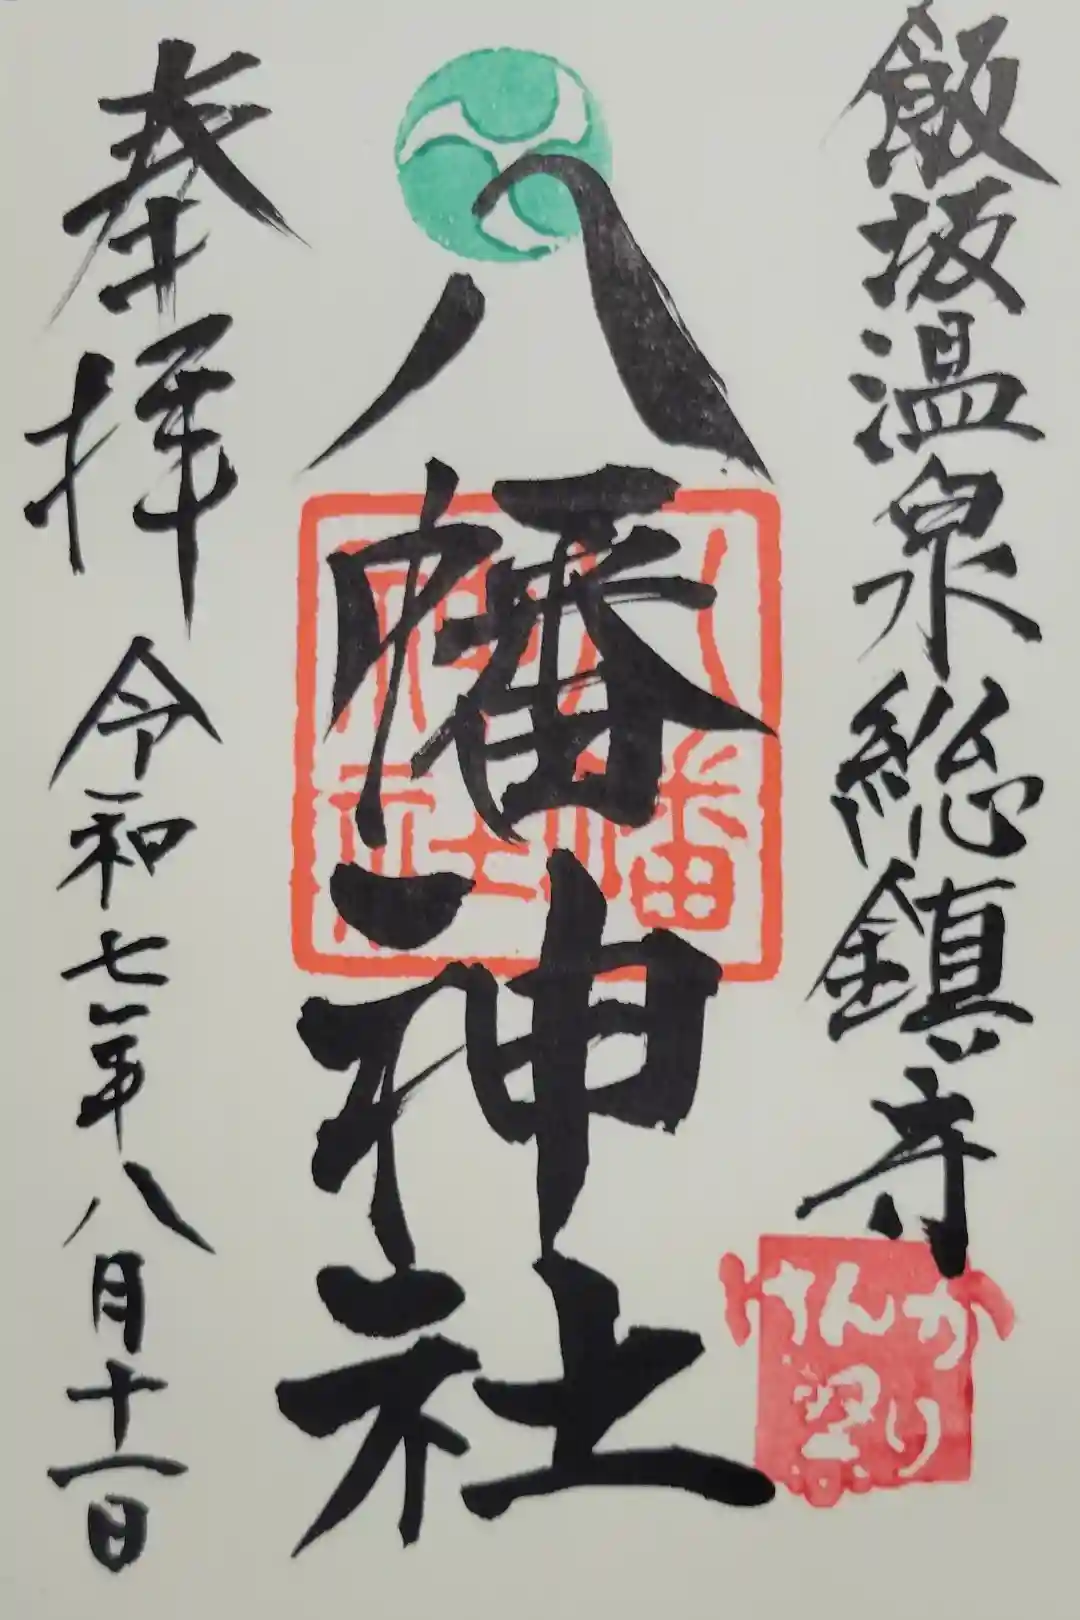 飯坂温泉総鎮守
八幡神社
八幡
神社
けんか
祭り
奉拝
令和七年八月十一日